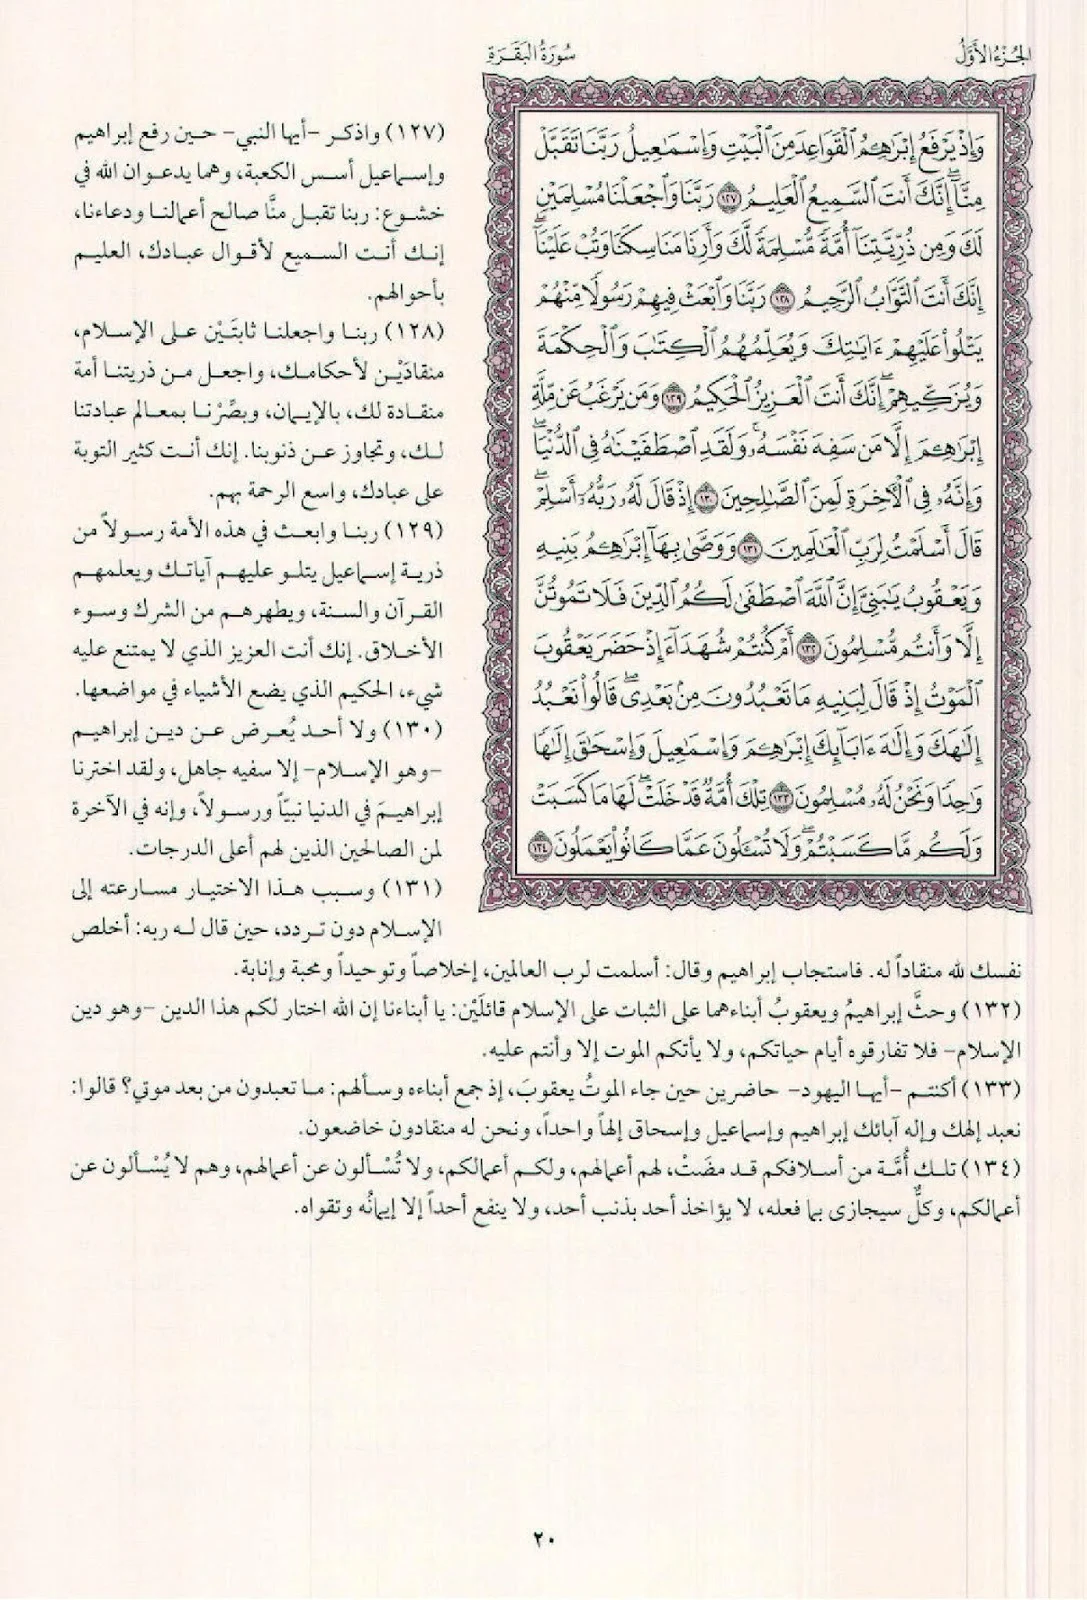 الجُزْءُ الأَوَّلُ
سُورَةُ البَقَرَةِ
وَإِذْ يَرْفَعُ إِبْرَٰهِـۧمُ ٱلْقَوَاعِدَ مِنَ ٱلْبَيْتِ وَإِسْمَـٰعِيلُ رَبَّنَا تَقَبَّلْ
مِنَّآ ۖ إِنَّكَ أَنتَ ٱلسَّمِيعُ ٱلْعَلِيمُ ١٢٧ رَبَّنَا وَٱجْعَلْنَا مُسْلِمَيْنِ
لَكَ وَمِن ذُرِّيَّتِنَآ أُمَّةً مُّسْلِمَةً لَّكَ وَأَرِنَا مَنَاسِكَنَا وَتُبْ عَلَيْنَآ ۖ
إِنَّكَ أَنتَ ٱلتَّوَّابُ ٱلرَّحِيمُ ١٢٨ رَبَّنَا وَٱبْعَثْ فِيهِمْ رَسُولًا مِّنْهُمْ
يَتْلُوا۟ عَلَيْهِمْ ءَايَـٰتِكَ وَيُعَلِّمُهُمُ ٱلْكِتَـٰبَ وَٱلْحِكْمَةَ
وَيُزَكِّيهِمْ ۚ إِنَّكَ أَنتَ ٱلْعَزِيزُ ٱلْحَكِيمُ ١٢٩ وَمَن يَرْغَبُ عَن مِّلَّةِ
إِبْرَٰهِـۧمَ إِلَّا مَن سَفِهَ نَفْسَهُۥ ۚ وَلَقَدِ ٱصْطَفَيْنَـٰهُ فِى ٱلدُّنْيَا ۖ
وَإِنَّهُۥ فِى ٱلْـَٔاخِرَةِ لَمِنَ ٱلصَّـٰلِحِينَ ١٣٠ إِذْ قَالَ لَهُۥ رَبُّهُۥٓ أَسْلِمْ ۖ
قَالَ أَسْلَمْتُ لِرَبِّ ٱلْعَـٰلَمِينَ ١٣١ وَوَصَّىٰ بِهَآ إِبْرَٰهِـۧمُ بَنِيهِ
وَيَعْقُوبُ يَـٰبَنِىَّ إِنَّ ٱللَّهَ ٱصْطَفَىٰ لَكُمُ ٱلدِّينَ فَلَا تَمُوتُنَّ
إِلَّا وَأَنتُم مُّسْلِمُونَ ١٣٢ أَمْ كُنتُمْ شُهَدَآءَ إِذْ حَضَرَ يَعْقُوبَ
ٱلْمَوْتُ إِذْ قَالَ لِبَنِيهِ مَا تَعْبُدُونَ مِنۢ بَعْدِى ۖ قَالُوا۟ نَعْبُدُ
إِلَـٰهَكَ وَإِلَـٰهَ ءَابَآئِكَ إِبْرَٰهِـۧمَ وَإِسْمَـٰعِيلَ وَإِسْحَـٰقَ إِلَـٰهًا
وَٰحِدًا وَنَحْنُ لَهُۥ مُسْلِمُونَ ١٣٣ تِلْكَ أُمَّةٌ قَدْ خَلَتْ ۖ لَهَا مَا كَسَبَتْ
وَلَكُم مَّا كَسَبْتُمْ ۖ وَلَا تُسْـَٔلُونَ عَمَّا كَانُوا۟ يَعْمَلُونَ ١٣٤
(١٢٧) واذكر -أيها النبي- حين رفع إبراهيم
وإسماعيل أسس الكعبة، وهما يدعوان الله في
خشوع: ربنا تقبل منَّا صالح أعمالنا ودعاءنا،
إنك أنت السميع لأقوال عبادك، العليم
بأحوالهم.
(١٢٨) ربنا واجعلنا ثابتَيْن على الإسلام،
منقادَيْن لأحكامك، واجعل من ذريتنا أمة
منقادة لك، بالإيمان، وبصِّرْنا بمعالم عبادتنا
لك، وتجاوز عن ذنوبنا. إنك أنت كثير التوبة
على عبادك، واسع الرحمة بهم.
(١٢٩) ربنا وابعث في هذه الأمة رسولاً من
ذرية إسماعيل يتلو عليهم آياتك ويعلمهم
القرآن والسنة، ويطهرهم من الشرك وسوء
الأخلاق. إنك أنت العزيز الذي لا يمتنع عليه
شيء، الحكيم الذي يضع الأشياء في مواضعها.
(١٣٠) ولا أحد يُعرض عن دين إبراهيم
-وهو الإسلام- إلا سفيه جاهل، ولقد اخترنا
إبراهيمَ في الدنيا نبيّاً ورسولاً، وإنه في الآخرة
لمن الصالحين الذين لهم أعلى الدرجات.
(١٣١) وسبب هذا الاختيار مسارعته إلى
الإسلام دون تردد، حين قال له ربه: أخلص
نفسك لله منقاداً له. فاستجاب إبراهيم وقال: أسلمت لرب العالمين، إخلاصاً وتوحيداً ومحبة وإنابة.
(١٣٢) وحثَّ إبراهيمُ ويعقوبُ أبناءهما على الثبات على الإسلام قائلَيْن: يا أبناءنا إن الله اختار لكم هذا الدين -وهو دين
الإسلام- فلا تفارقوه أيام حياتكم، ولا يأتكم الموت إلا وأنتم عليه.
(١٣٣) أكنتم -أيها اليهود- حاضرين حين جاء الموتُ يعقوبَ، إذ جمع أبناءه وسألهم: ما تعبدون من بعد موتي؟ قالوا:
نعبد إلهك وإله آبائك إبراهيم وإسماعيل وإسحاق إلهاً واحداً، ونحن له منقادون خاضعون.
(١٣٤) تلك أُمَّة من أسلافكم قد مضَتْ، لهم أعمالهم، ولكم أعمالكم، ولا تُسْألون عن أعمالهم، وهم لا يُسْألون عن
أعمالكم، وكلٌّ سيجازى بما فعله، لا يؤاخذ أحد بذنب أحد، ولا ينفع أحداً إلا إيمانُه وتقواه.
٢٠